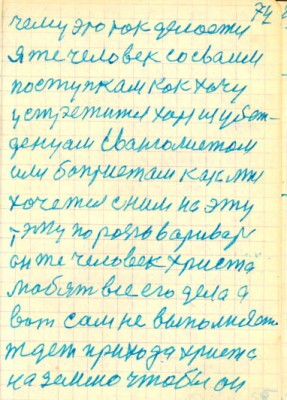 74
чему это ток делоети
я те человек со сваим
поступкам кок хочу
устретится хош и убеж-
денуам Еванголистом
или боптистам как мти
хочется с ним на эту
тэму поразговаривать
он те человек христа
любят все его дела а
вот сам не выполняеть
ждет прихода христа
на землю чтобы он